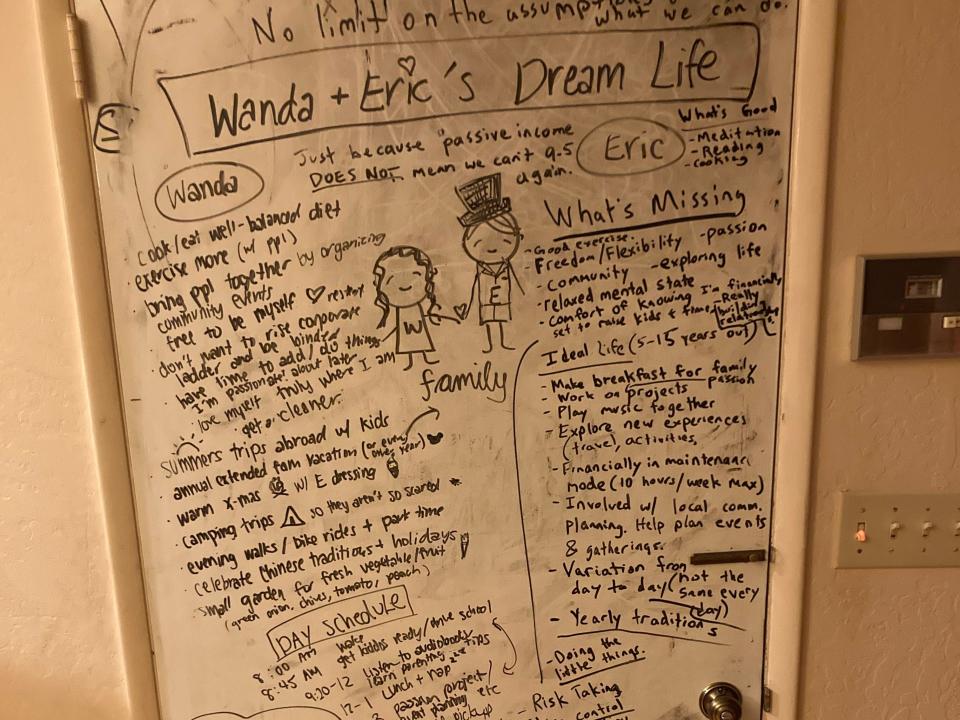 No limit on the assumptions
what we can do.
Wanda + Eric's Dream Life
Just because "passive income
DOES NOT mean we can't 9-5
again.
Wanda
• cook/eat well-balanced diet
• exercise more (w/ ppl)
• bring ppl together by organizing
community events
• free to be myself
• don't want to rise corporate
ladder and be
• have time to add/do things
I'm passionate about later
• love myself truly where I am
• get a cleaner.
summers trips abroad w/ kids
• annual extended fam vacation (or every
other year)
• warm x-mas w/ E dressing
• camping trips so they aren't so scared
• evening walks/bike rides + part time
• celebrate Chinese traditions + holidays
• small garden for fresh vegetable/fruit
(green onion, chives, tomato, peach)
DAY SCHEDULE
8:00 AM wake
8:45 AM get kiddos ready/drive school
9:20-12 listen to audiobooks
learn parenting tips
12-1 Lunch + nap zzz
passion project/
event planning
etc
pickup
W
E
family
Eric
What's Good
- Meditation
- Reading
- cooking
What's Missing
- Good exercise.
- Freedom/Flexibility - passion
- community - exploring life
- relaxed mental state
- comfort of knowing I'm financially
set to raise kids + time
- Really
building
relationships
Ideal Life (5-15 years out)
- Make breakfast for family
- Work on projects passion
- Play music together
- Explore new experiences
(travel), activities,
- Financially in maintenance
mode (10 hours/week max)
- Involved w/ local comm.
planning. Help plan events
& gatherings.
- Variation from
day to day (not the
same every
day)
- Yearly traditions
- Doing the
little things.
- Risk Taking
control